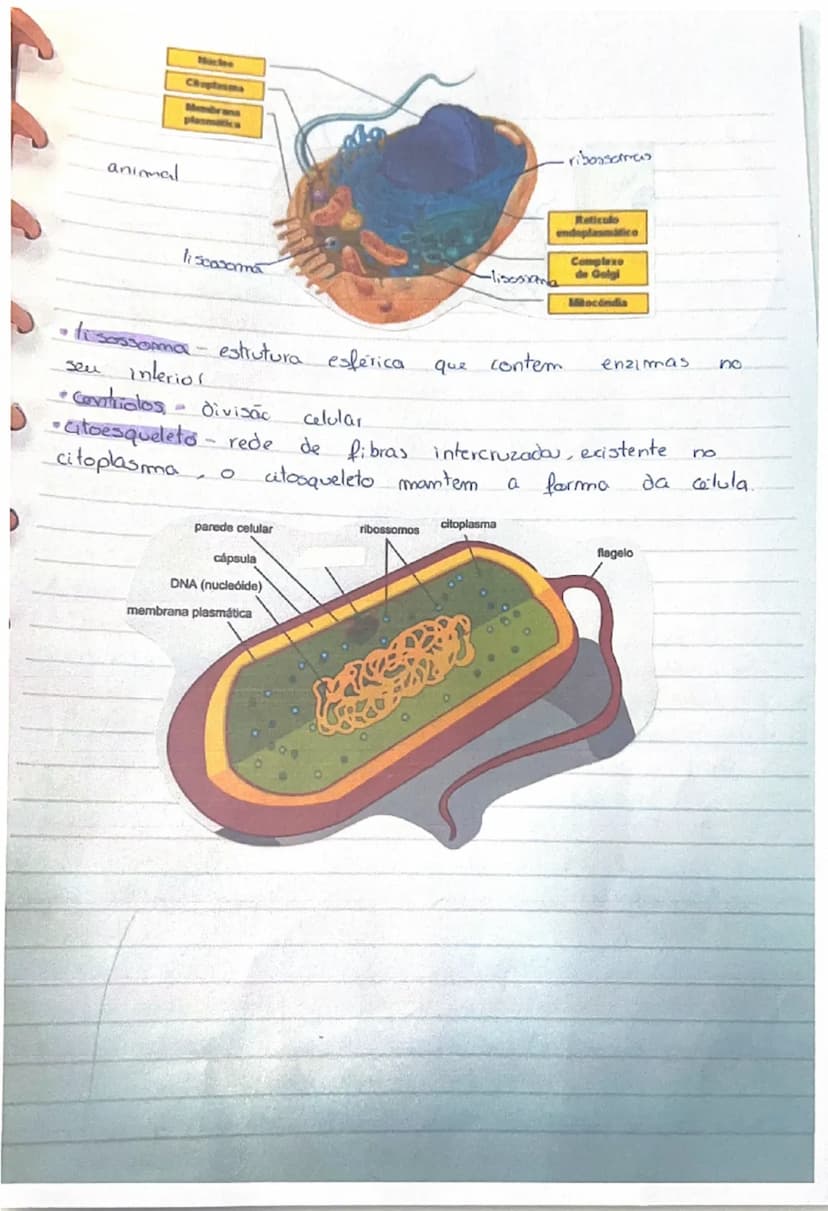 Núcleo
Citoplasma
Membrana
plasmática
animal
ribossomas
Retículo
endoplasmático
Complexo
de Golgi
Mitocôndia
liscosoma
lisossoma
• lisossoma - estrutura esférica que contem enzimas no
seu interior
• Centríolos - divisão celular
• citoesqueleto - rede de fibras intercruzada, existente no
citoplasma, o citosqueleto mantem a forma da celula.
parede celular
ribossomos
citoplasma
cápsula
flagelo
DNA (nucleóide)
membrana plasmática